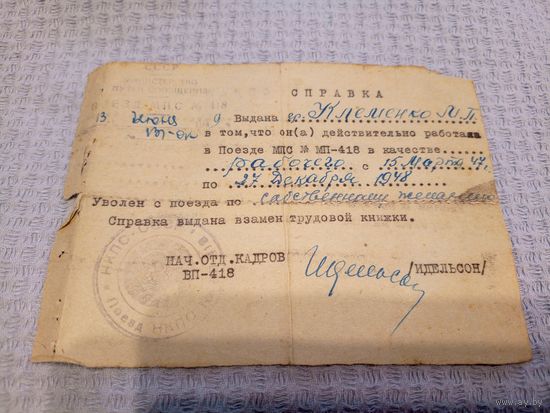 СССР
МИНИСТЕРСТВО
ПУТЕЙ СООБЩЕНИЯ
ПОЕЗД МПС № 418
СПРАВКА
13 июня 9 Выдана гр. Клеменко М.П.
в том, что он(а) действительно работала
в Поезде МПС № МП-418 в качестве
рабочего с 15 Марта 47.
по 27 Декабря 1948
Уволен с поезда по собственному желанию
Справка выдана взамен трудовой книжки.
НАЧ.ОТД.КАДРОВ
ВП-418
/ИДЕЛЬСОН/
Поезд НКПС
www.ay.by